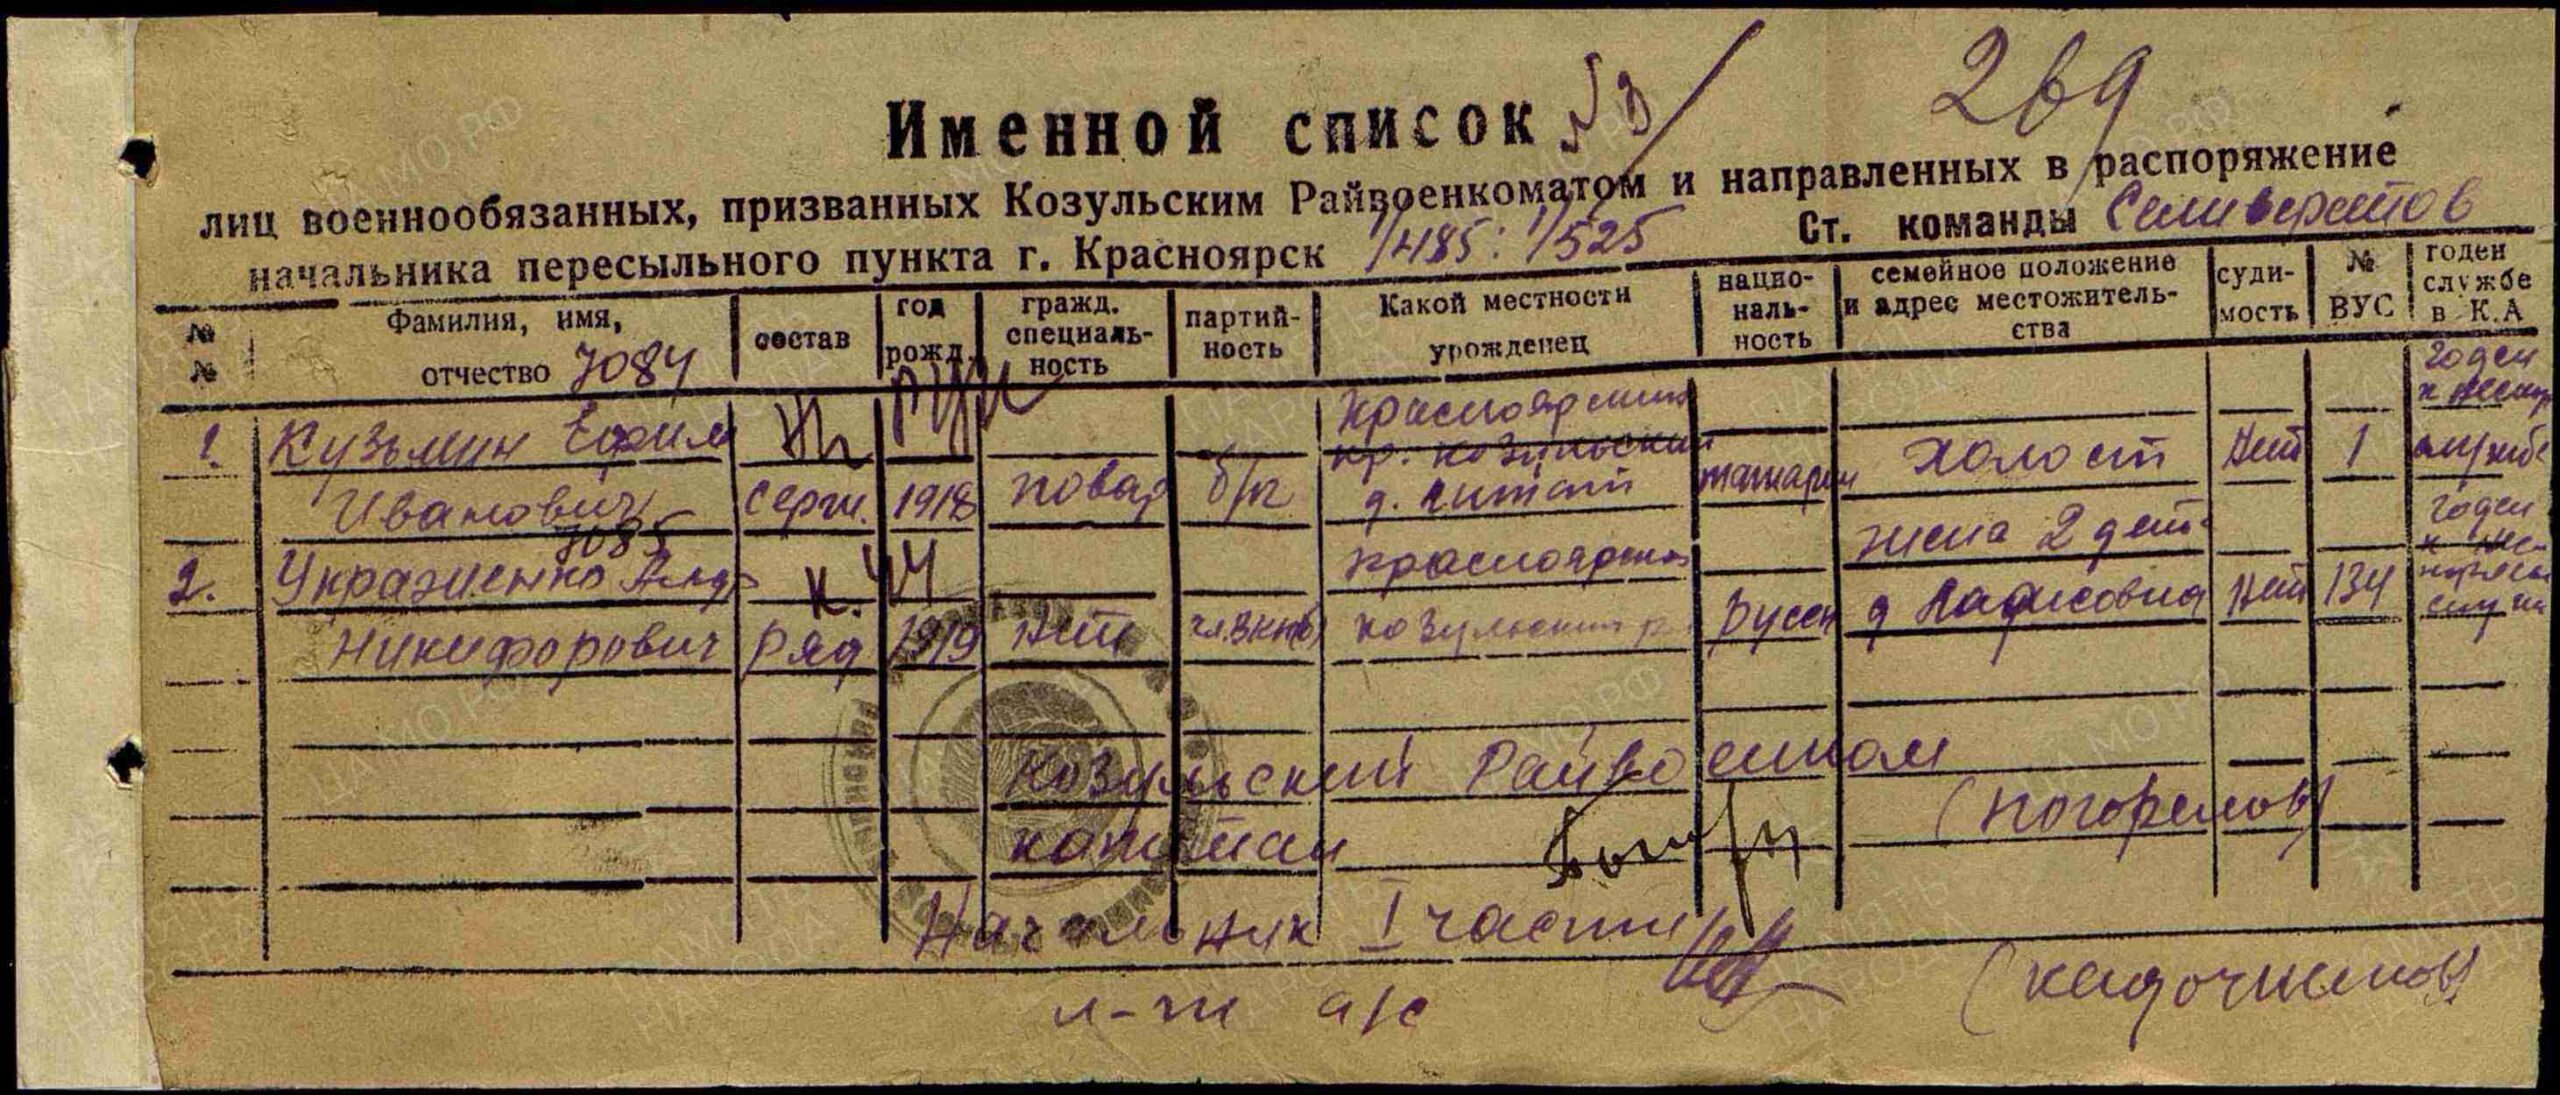 269
Именной список №3
лиц военнообязанных, призванных Козульским Райвоенкоматом и направленных в распоряжение
начальника пересыльного пункта г. Красноярск 1/485: 1/525 Ст. команды Селиверстов
№ № Фамилия, имя, отчество 7084 состав год рожд. гражд. специаль-ность партий-ность Какой местности урожденец нацио-наль-ность семейное положение и адрес местожитель-ства суди-мость № ВУС годен службе в К.А
1. Кузьмин Ефим Иванович серж. 1918 повар б/п Красноярский кр. Козульский д. Читат татарин холост Нет 1 годен к службе
7085
2. Украженко Алдр Никифорович ряд 1919 Нет чл.ВКП(б) Красноярский Козульский р. Русск жена 2 дет. Нет 134 годен к
Козульский Райвоенком
капитан (Погорелов)
Начальник I части
л-т а/с (Кадочников)